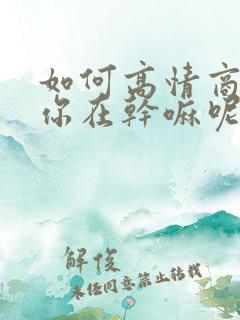 如何高情商
你在幹嘛呢
解俊
未经同意禁止转载